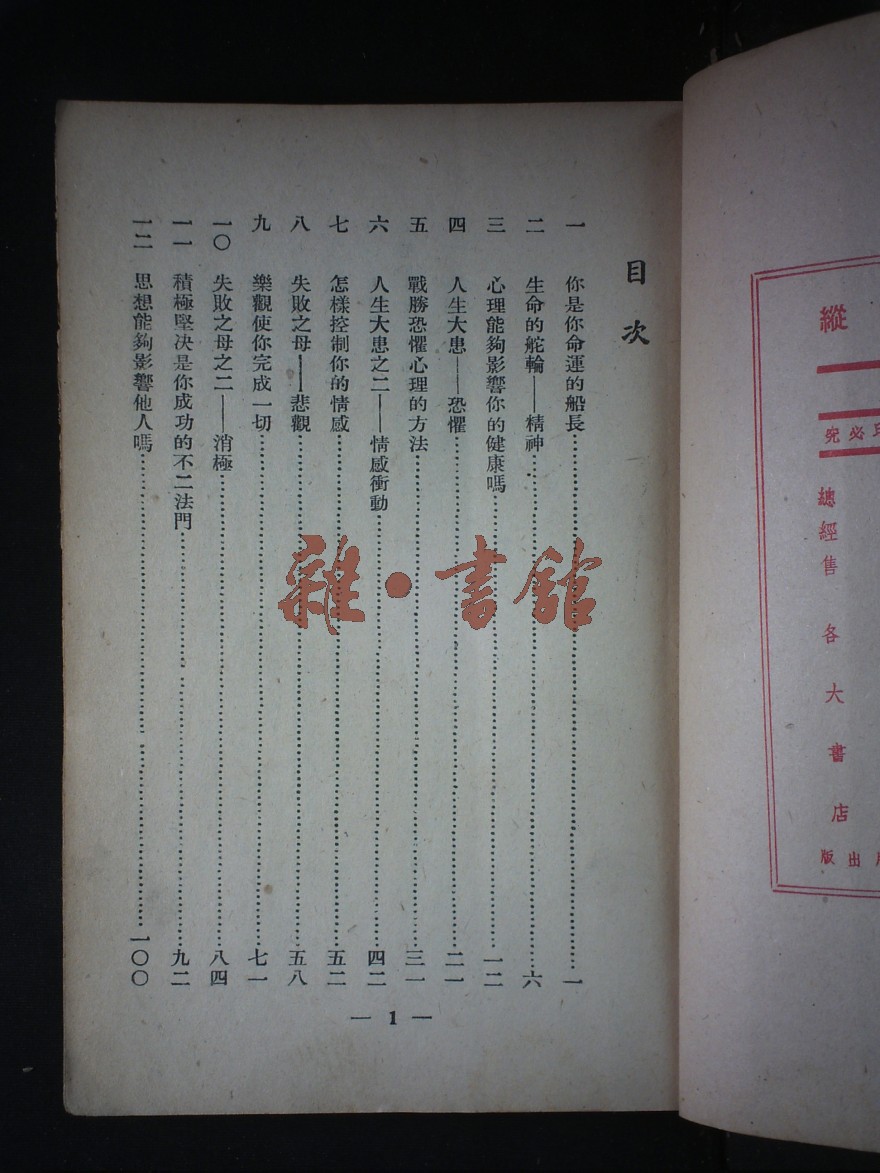 縱
究必
總經售 各大書店
版出
目次
一 你是你命運的船長……一
二 生命的舵輪——精神……六
三 心理能夠影響你的健康嗎……一二
四 人生大患——恐懼……二一
五 戰勝恐懼心理的方法……三一
六 人生大患之二——情感衝動……四二
七 怎樣控制你的情感……五二
八 失敗之母——悲觀……五八
九 樂觀使你完成一切……七一
一〇 失敗之母之二——消極……八四
一一 積極堅决是你成功的不二法門……九二
一二 思想能夠影響他人嗎……一〇〇
— 1 —
雜·書館